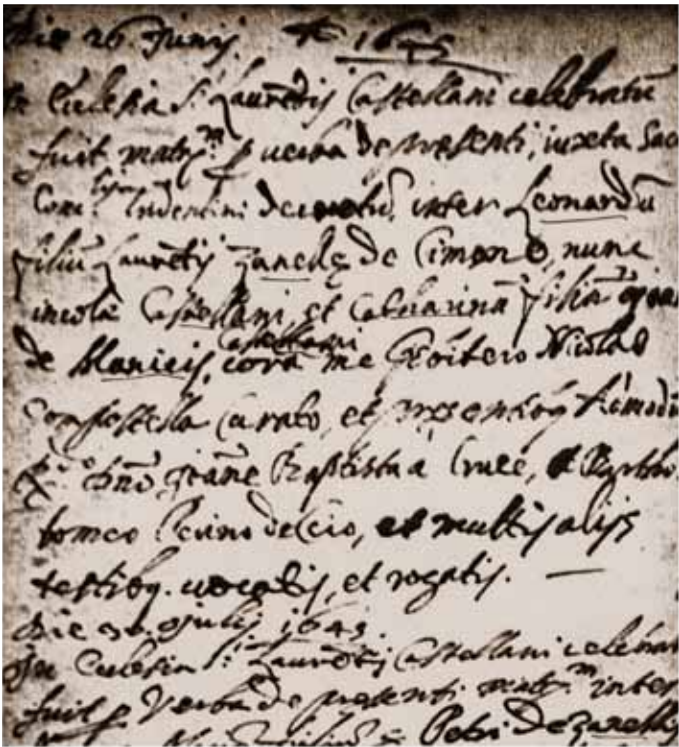 Die 26 Junij. 1645
In Eclesia S. Laurētij Castellani celebratū
fuit matrm. p verba de presenti, iuxta Sac
Conc. Tridentini decretū, inter Leonardū
filiū Laurētij Zanelle de Cimono, nunc
incolā Castellani, et Catharinā filiā
de Blanicis, Castellani corā me Nicolao
Compostella Curato, et presentibq
dno Joāne Baptista a Cruce, et Bartho
lomeo Perino de Cio, et multis alijs
testibq. vocatis, et rogatis. —
Die Julij 1645.
In Eclesia S. Laurētij Castellani celebrat
fuit p Verba de presenti matrm inter
Petri de Zanettis